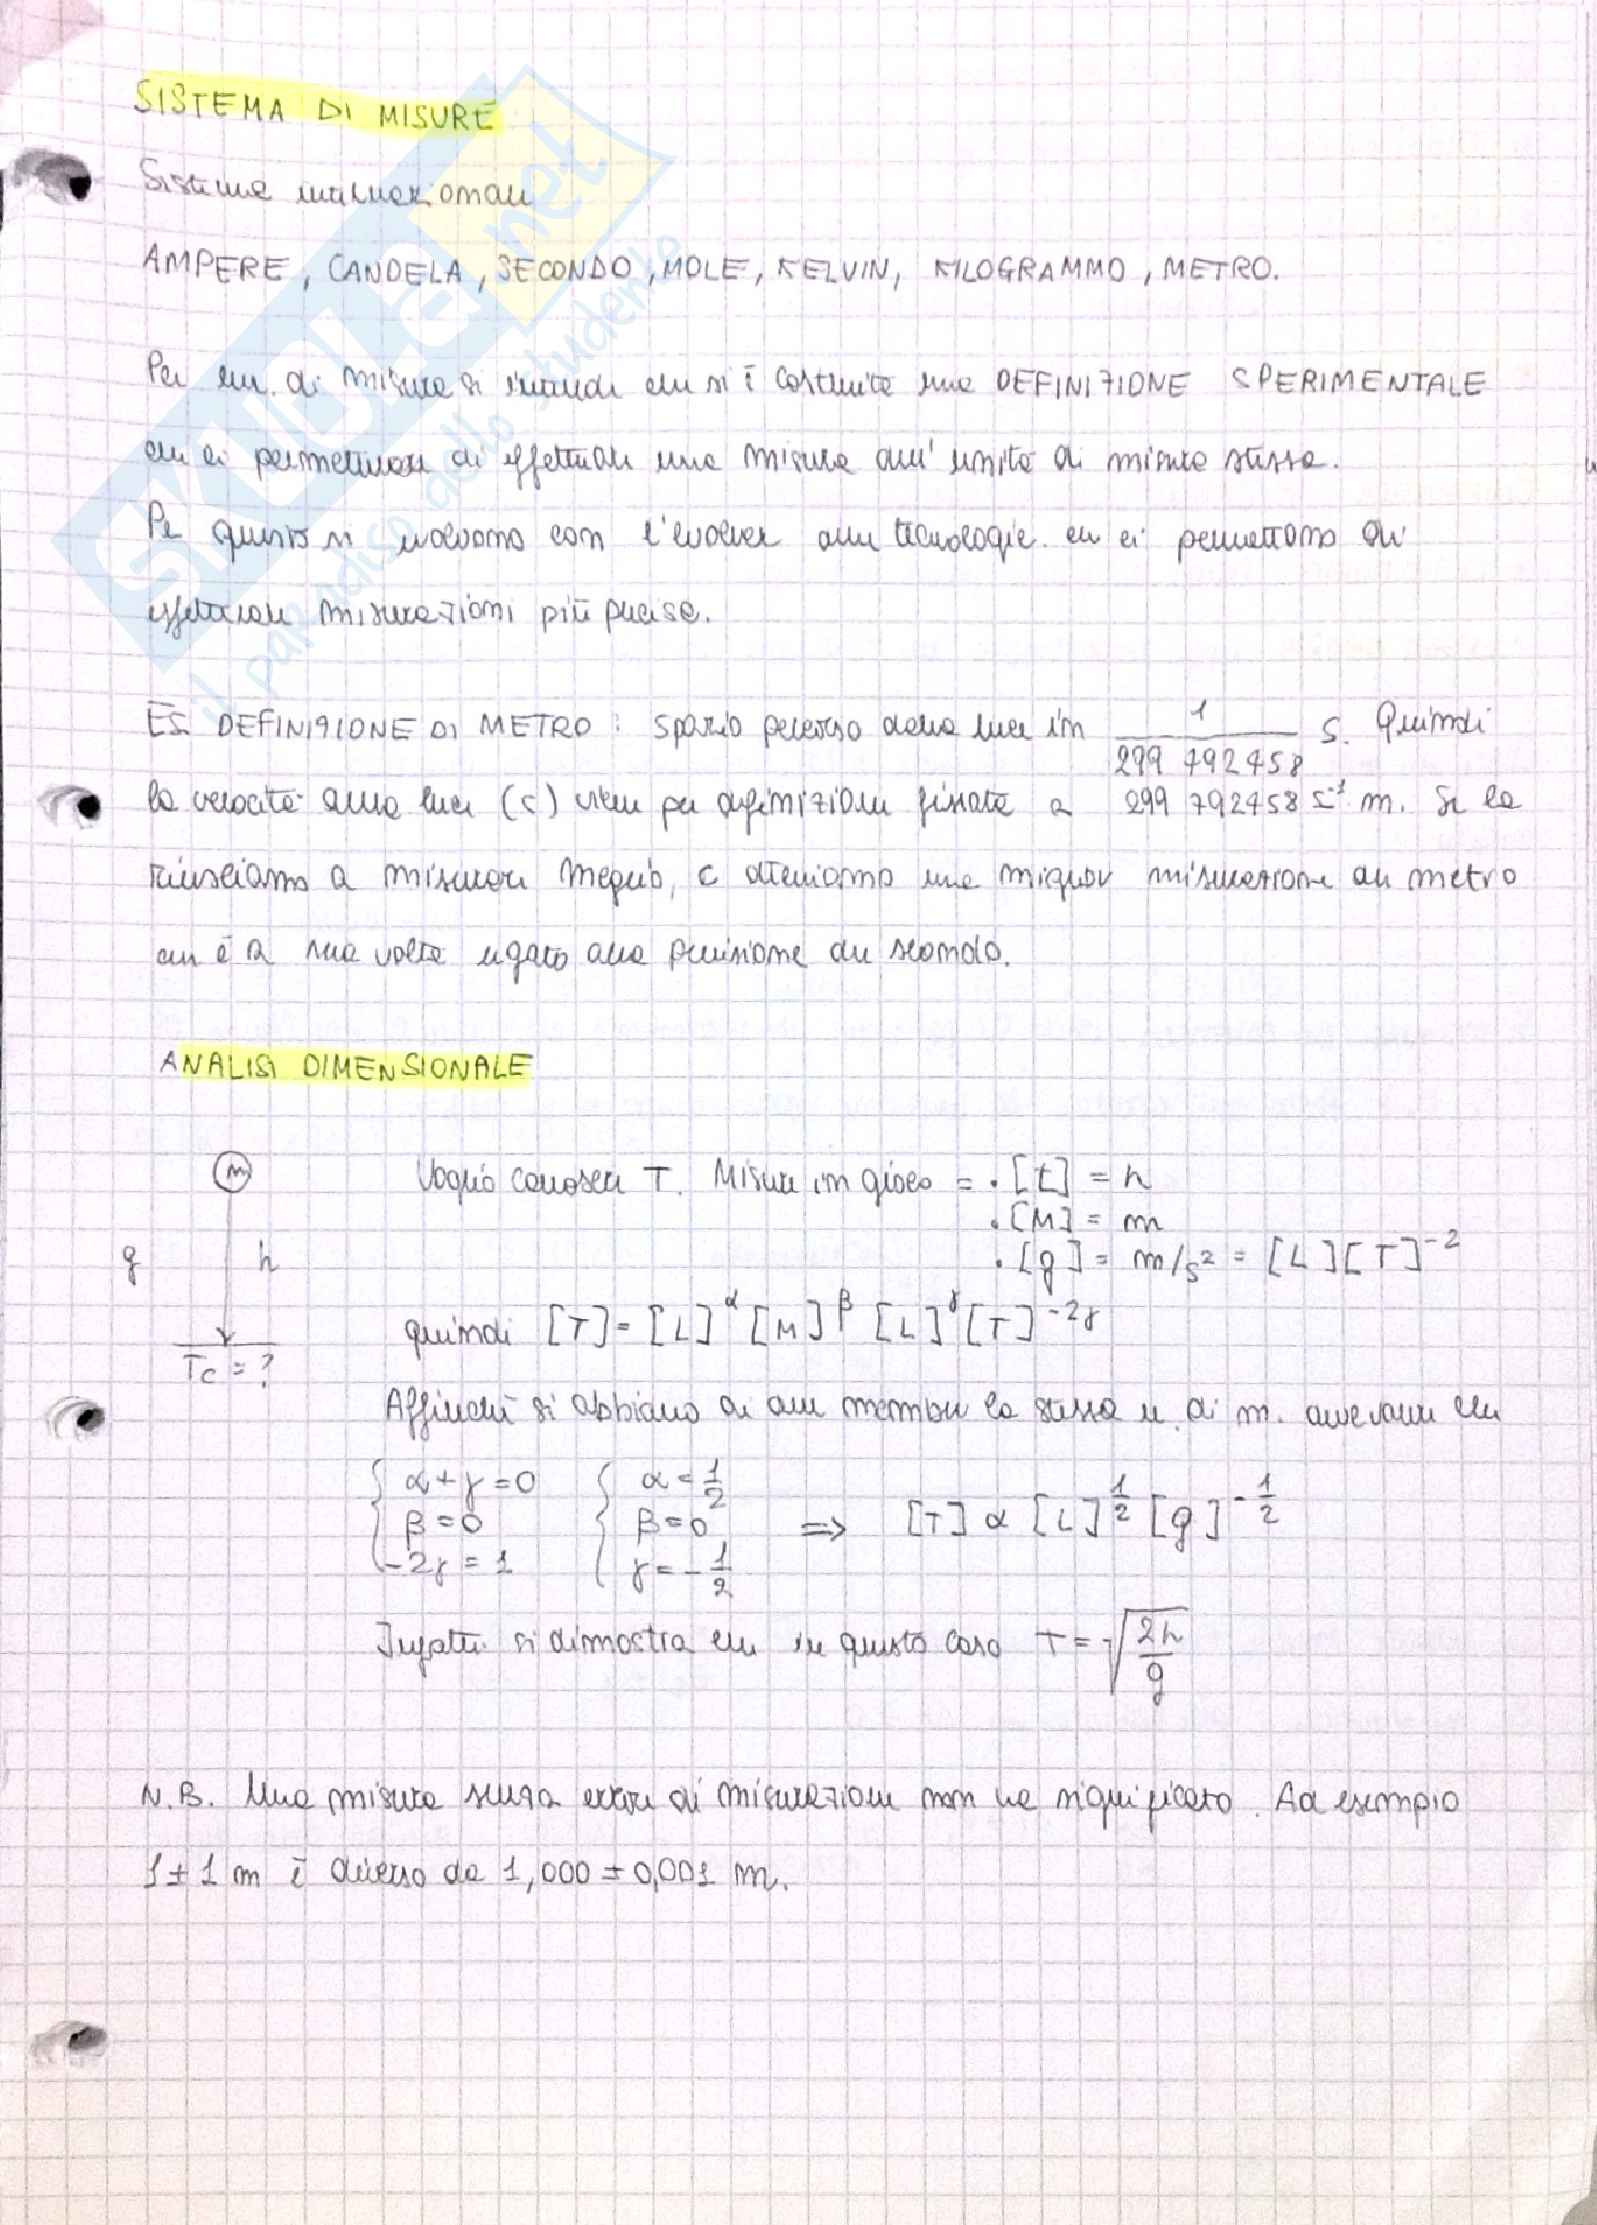 SISTEMA DI MISURE
Sistema internazionale
AMPERE, CANDELA, SECONDO, MOLE, KELVIN, KILOGRAMMO, METRO.
Per un. di misura si intende che si è costruita una DEFINIZIONE SPERIMENTALE
che ci permettere di effettuare una misura dell' unità di misura stessa.
Per questo si evolvono con l'evolver delle tecnologie che ci permettono di
effettuare misurazioni più precise.
ES. DEFINIZIONE DI METRO: spazio percorso dalla luce in 1/299 792458 s. Quindi
la velocità della luce (c) viene per definizione fissata a 299 792458 s⁻¹ m. Se la
riusciamo a misurare meglio, c otteniamo una miglior misurazione del metro
che è a sua volta legato alla precisione del secondo.
ANALISI DIMENSIONALE
m
Voglio conoscere T. Misure in gioco = • [L] = h
• [M] = m
g h
• [g] = m/s² = [L][T]⁻²
quindi [T] = [L]^α [M]^β [L]^γ [T]^-2γ
Tc = ?
Affinché si abbiano ai due membri la stessa u. di m. avevamo che
{ α+γ=0 { α=1/2
β=0 β=0 ⇒ [T] α [L]^1/2 [g]^-1/2
-2γ=1 γ=-1/2
Infatti si dimostra che in questo caso T=√(2h/g)
N.B. Una misura senza errore di misurazione non ha significato. Ad esempio
1±1 m è diverso da 1,000±0,001 m.
SKUOLA.net
il paradiso dello studente